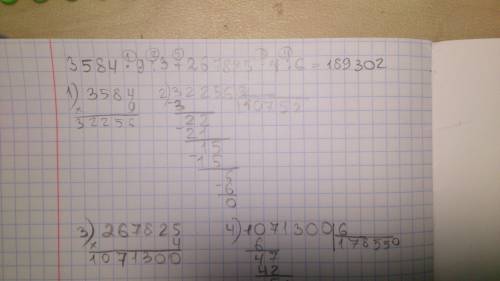 3584·9:3+267825·4:6=189302
1) 3584
× 9
32256
2) 32256 3
-3 10752
22
-21
15
-15
6
-6
0
3) 267825
× 4
1071300
4) 1071300 6
6 178550
47
42